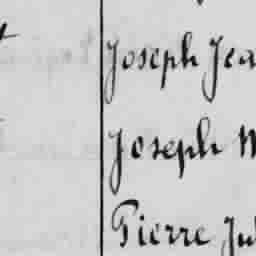 Joseph Jea
Joseph M
Pierre Jul